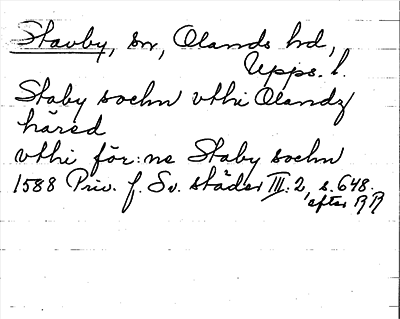 Stavby, sn, Olands hd,
Upps. l.
Staby sochn vthi Olandz
häred
vthi för:ne Staby sochn
1588 Priv. f. Sv. städer III:2, s. 648.
efter RR